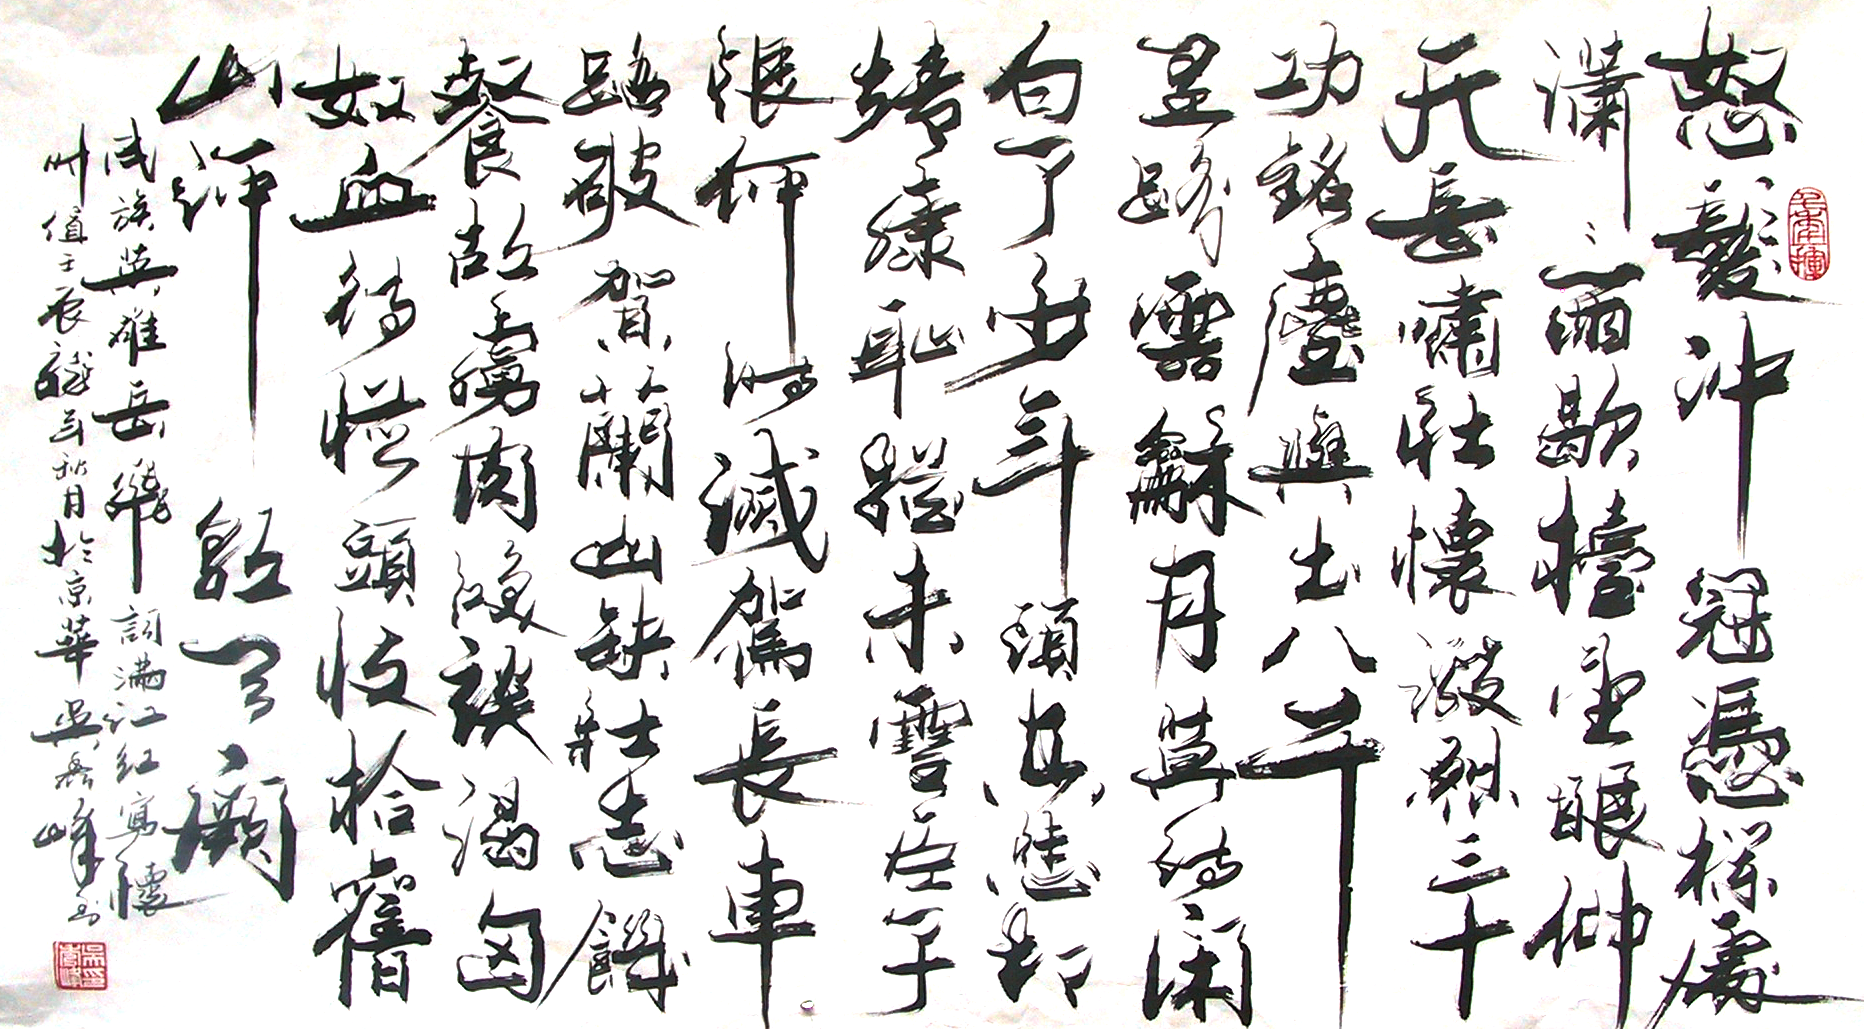 怒髮冲冠憑欄處
瀟〻雨歇擡望眼仰
天長嘯壯懷激烈三十
功銘塵與土八千
里路雲龢月莫等闲
白了少年頭空悲切
靖康恥猶未雪臣子
恨何時滅駕長車
踏破賀蘭山缺壯志饑
餐胡虜肉笑談渴匈
奴血待從頭收拾舊
山河朝天闕
民族英雄岳飛詞满江红寫懷
时值壬辰龍年秋月於京華吴峰书